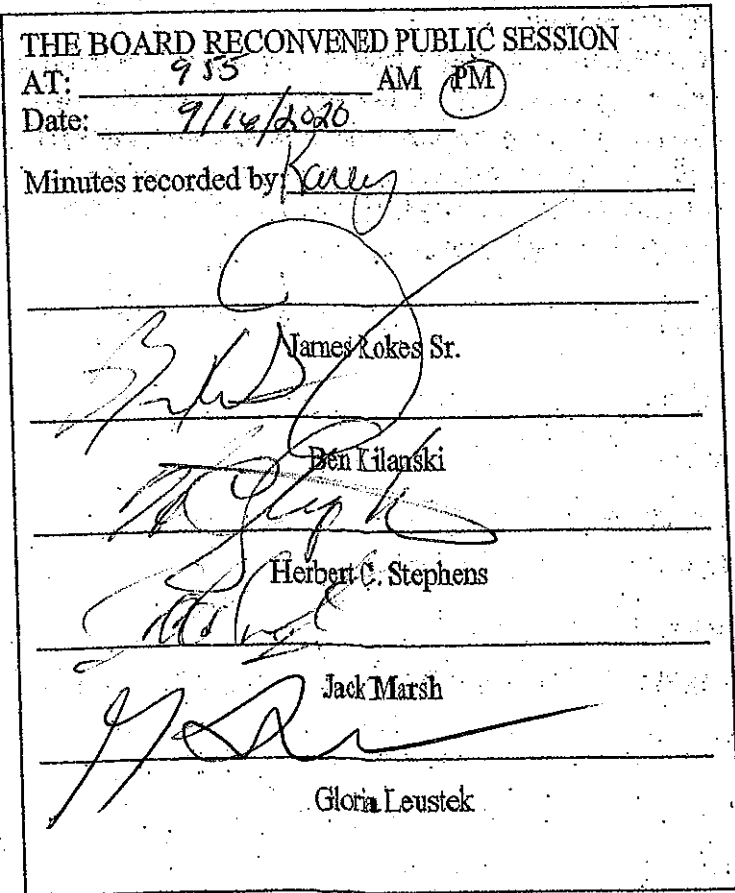 THE BOARD RECONVENED PUBLIC SESSION
AT: 955 AM PM
Date: 9/16/2020
Minutes recorded by Karey
James Kokes Sr.
Ben Kilanski
Herbert C. Stephens
Jack Marsh
Gloria Leustek